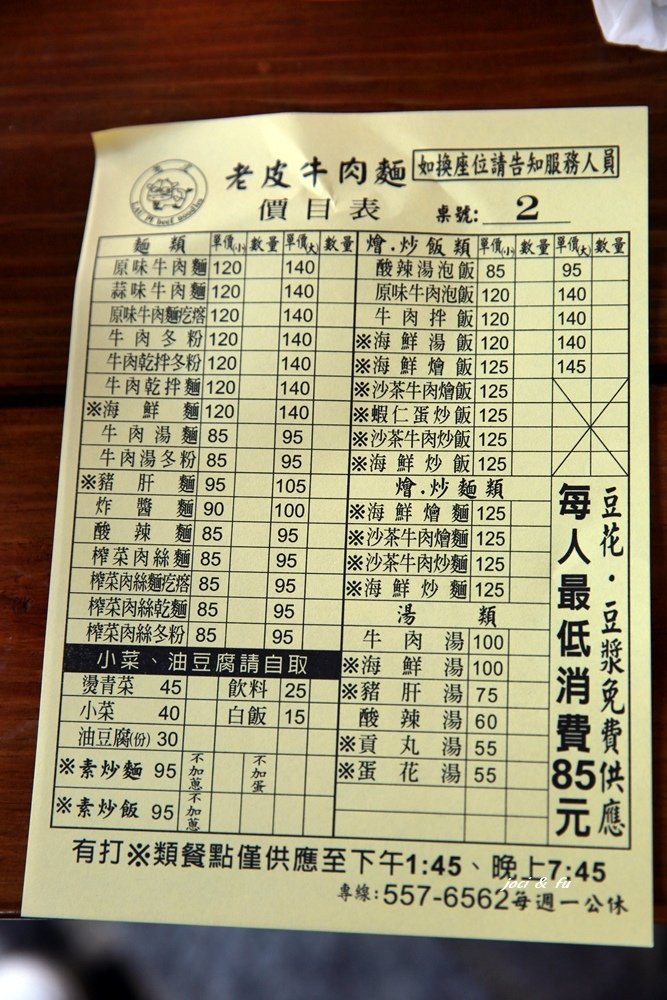 老皮牛肉麵 如換座位請告知服務人員
LAU PI beef noodles
價目表 桌號: 2
麵類 單價(小) 數量 單價(大) 數量
原味牛肉麵 120 140
蒜味牛肉麵 120 140
原味牛肉麵疙瘩 120 140
牛肉冬粉 120 140
牛肉乾拌冬粉 120 140
牛肉乾拌麵 120 140
※海鮮麵 120 140
牛肉湯麵 85 95
牛肉湯冬粉 85 95
※豬肝麵 95 105
炸醬麵 90 100
酸辣麵 85 95
榨菜肉絲麵 85 95
榨菜肉絲麵疙瘩 85 95
榨菜肉絲乾麵 85 95
榨菜肉絲冬粉 85 95
小菜、油豆腐請自取
燙青菜 45 飲料 25
小菜 40 白飯 15
油豆腐(份) 30
※素炒麵 95 不加蔥 不加蛋
※素炒飯 95 不加蔥
燴.炒飯類 單價(小) 數量 單價(大) 數量
酸辣湯泡飯 85 95
原味牛肉泡飯 120 140
牛肉拌飯 120 140
※海鮮湯飯 120 140
※海鮮燴飯 125 145
※沙茶牛肉燴飯 125
※蝦仁蛋炒飯 125
※沙茶牛肉炒飯 125
※海鮮炒飯 125
燴.炒麵類
※海鮮燴麵 125
※沙茶牛肉燴麵 125
※沙茶牛肉炒麵 125
※海鮮炒麵 125
湯類
牛肉湯 100
※海鮮湯 100
※豬肝湯 75
酸辣湯 60
※貢丸湯 55
※蛋花湯 55
豆花．豆漿免費供應
每人最低消費85元
有打※類餐點僅供應至下午1:45、晚上7:45
joci & fu
專線:557-6562每週一公休